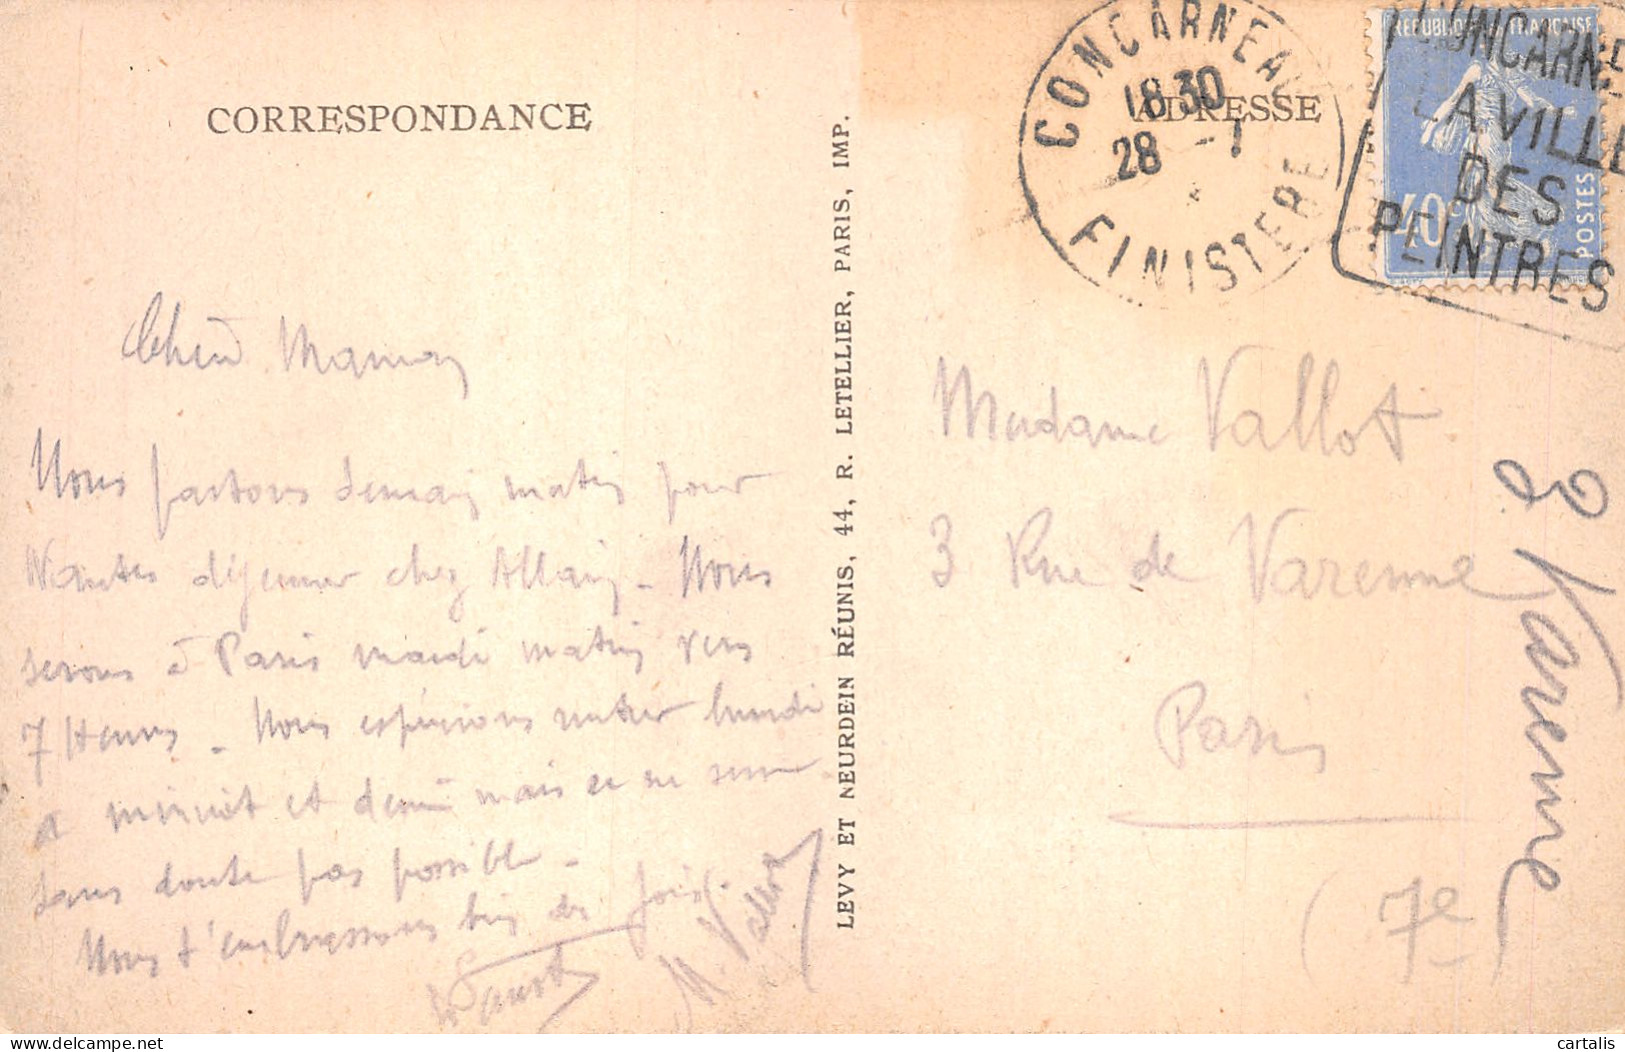 CORRESPONDANCE
Maman
Nous partons demain matin pour
Nantes déjeuner chez Allain - Nous
serons à Paris mardi matin vers
7 Heures - Nous espérions rentrer lundi
a minuit et demi mais ce ne sera
sans doute pas possible -
Nous t'embrassons bien des fois.
LEVY ET NEURDEIN RÉUNIS, 44, R. LETELLIER, PARIS, IMP.
ADRESSE
CONCARNEAU
18 30
28 -1
FINISTERE
REPUBLIQUE FRANÇAISE
40c
POSTES
CONCARNE
LA VILLE
DES
PEINTRES
Madame Vallot
3 Rue de Varenne
Paris
(7e)
3 Varenne
cartalis
www.delcampe.net